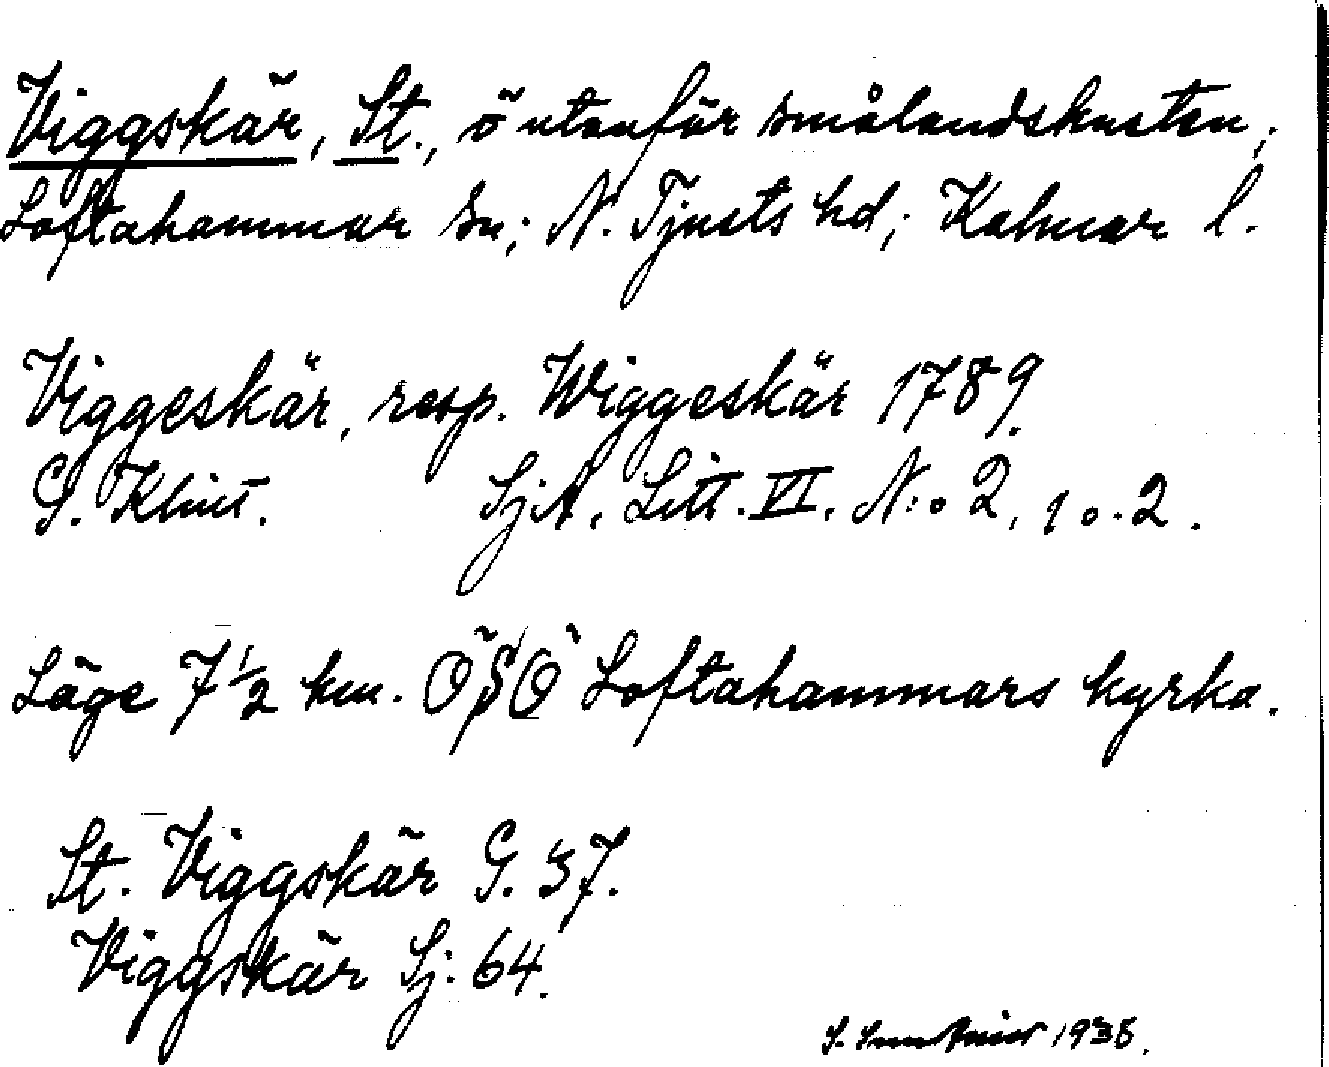 Viggskär, St., ö utanför smålandskusten;
Loftahammar sn; N. Tjusts hd; Kalmar l.
Viggeskär, resp. Wiggeskär 1789.
G. Klint. SjA. Litt. VI. N:o 2, 1 o. 2.
Läge 7 1/2 km. ÖSÖ Loftahammars kyrka.
St. Viggskär G. 37.
Viggskär Sj. 64.
S. 1938.